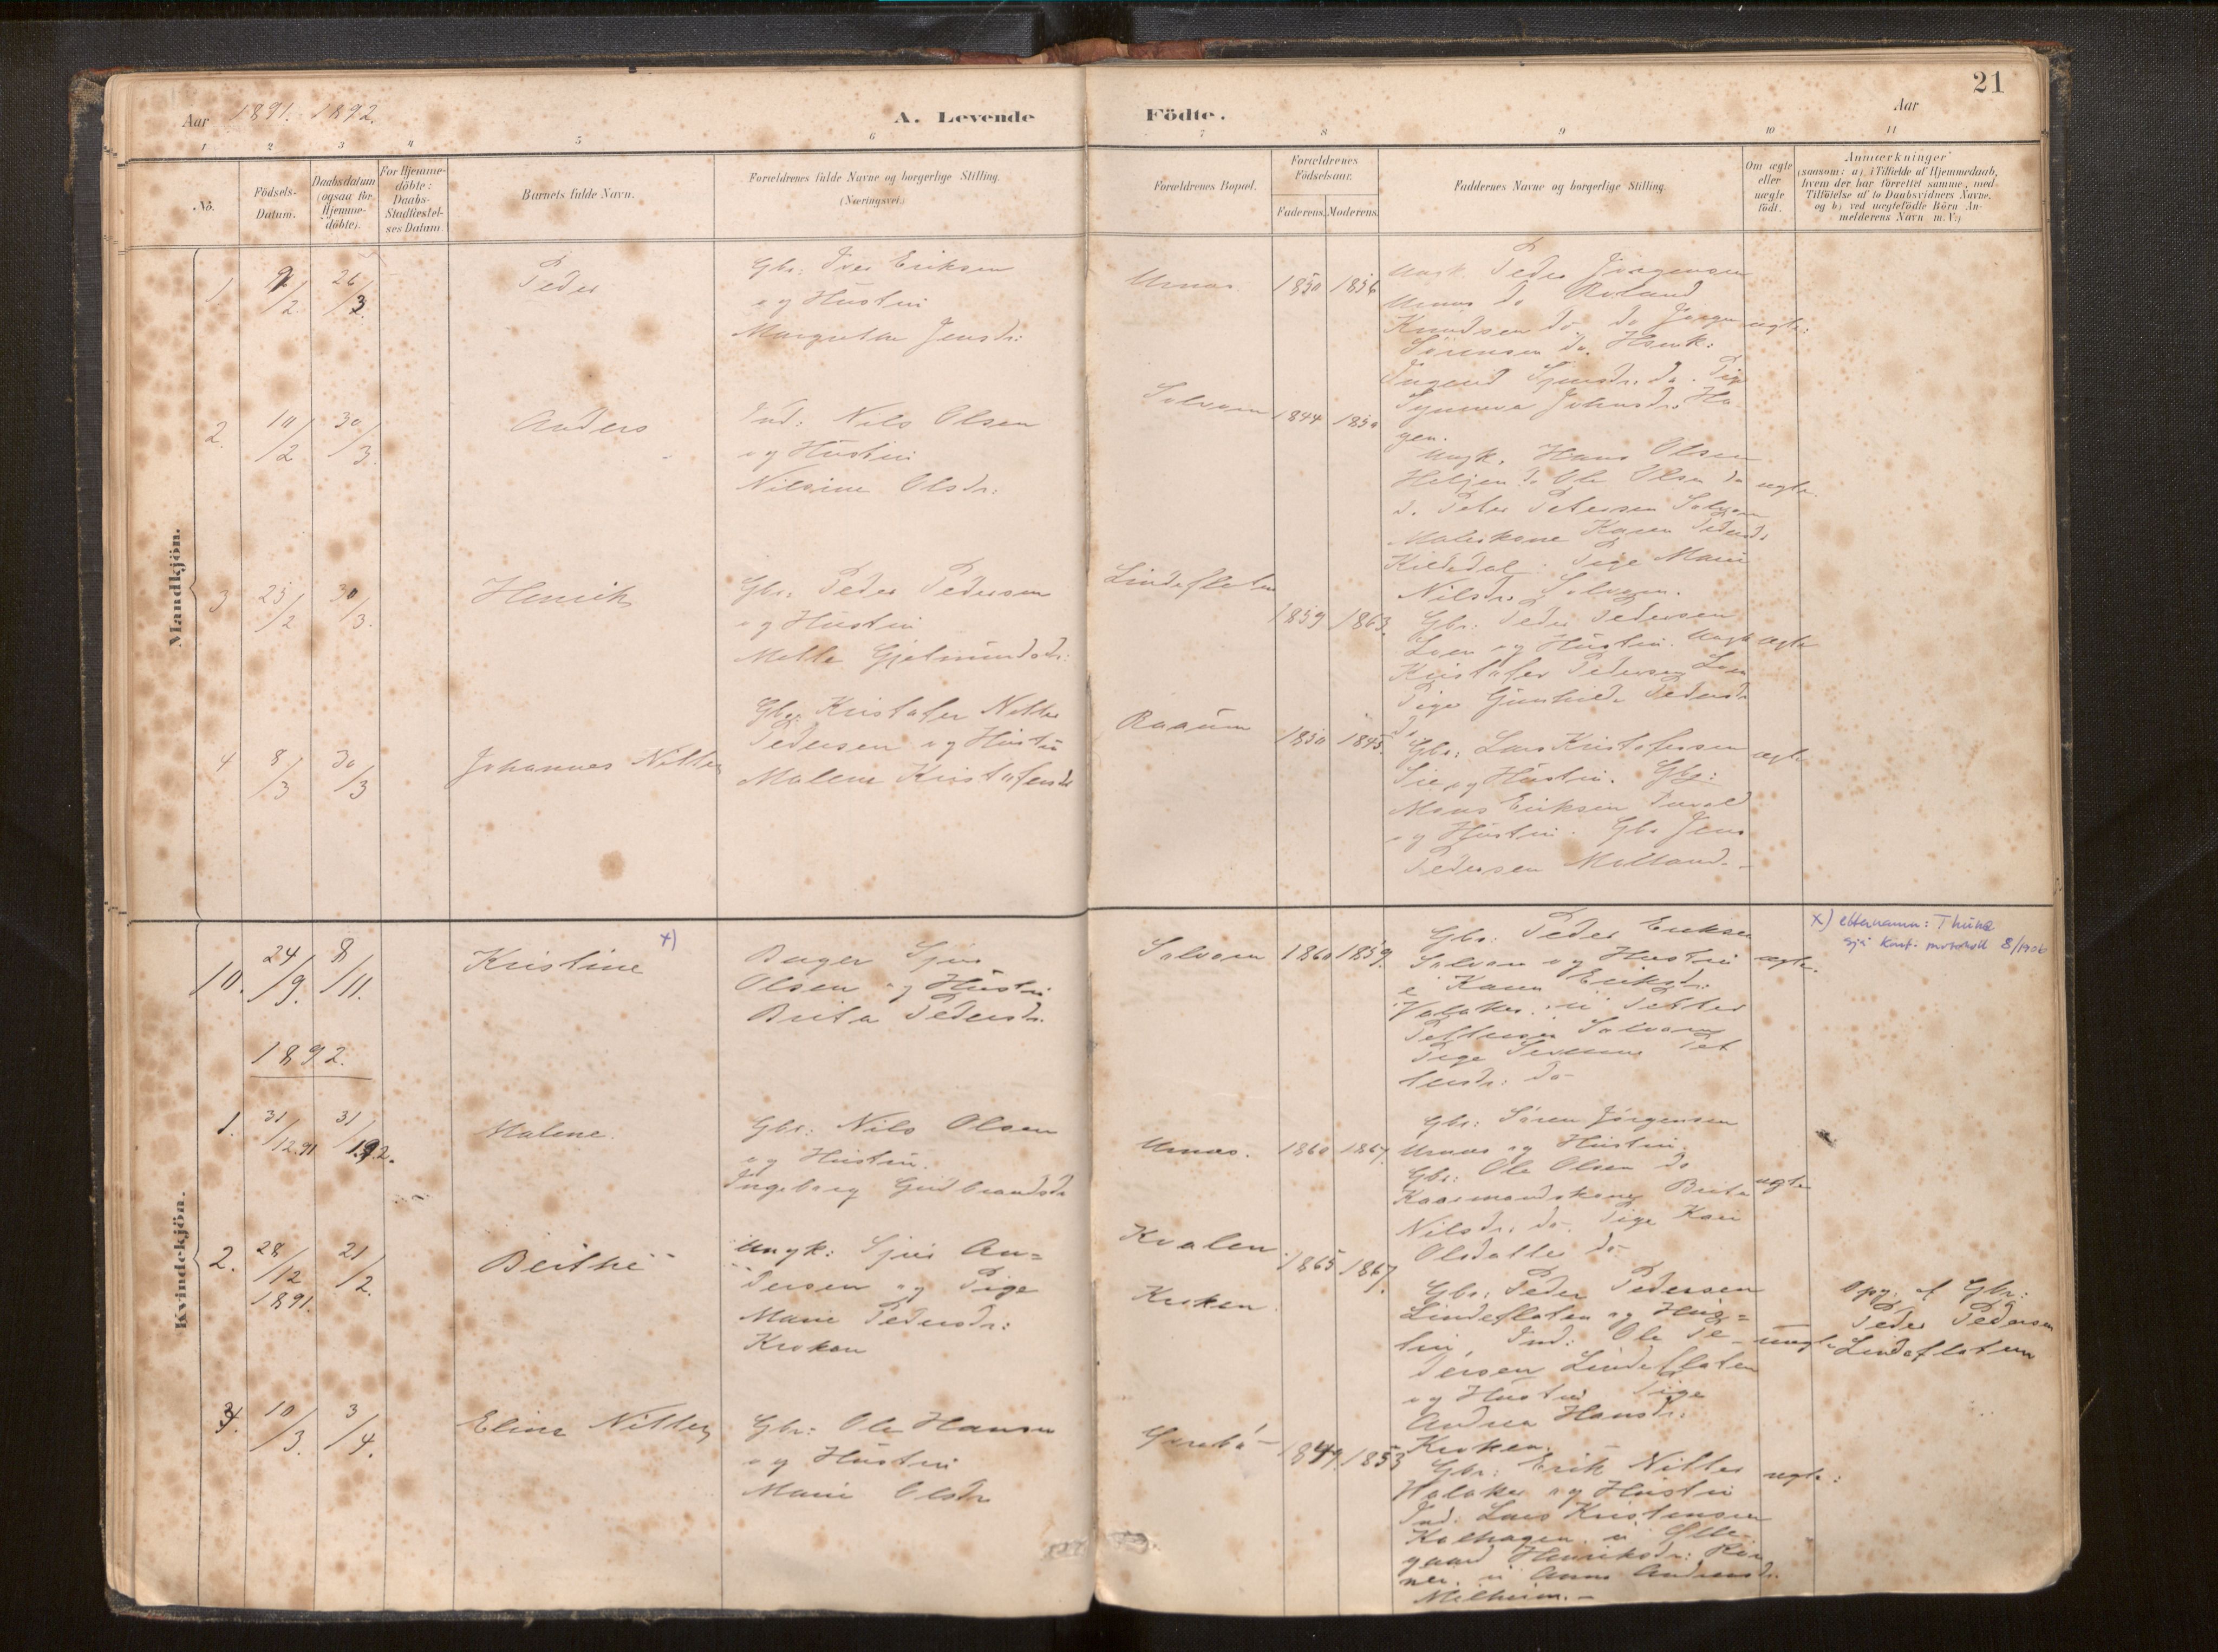 21
Aar 1891. 1892.
A. Levende Födte.
Aar
1 2 3 4 5 6 7 8 9 10 11
No.
Födsels-Datum.
Daabsdatum (ogsaa for Hjemme-döbte).
For Hjemme-döbte: Daabs-Stadfæstel-ses Datum.
Barnets fulde Navn.
Forældrenes fulde Navne og borgerlige Stilling.
(Næringsvei.)
Forældrenes Bopæl.
Forældrenes Födselsaar.
Faderens. Moderens.
Faddernes Navne og borgerlige Stilling.
Om ægte eller uægte födt.
Anmærkninger
(saasom: a) i Tilfælde af Hjemmedaab,
hvem der har forrettet samme, med
Tilföielse af to Daabsvidners Navne,
og b) ved uægtefödte Börn An-
melderens Navn m. V.)
Mandkjön.
1 2/2 26/3 Peder
Gbr: Iver Eriksen
og Hustru
Margrethe Jensdr:
Urnæs. 1850 1856
Ungk. Peder Jørgensen
Urnæs do Roland
Knudsen do do Jørgen
Sørensen do.
ægte:
2. 10/2 30/3. Anders
Ind: Nils Olsen
og Hustru
Nilsine Olsdr:
Solvorn 1844 1850
Ungk. Hans Olsen
do Ole Olsen do
d. Peter Petersen Solvorn
Malerkone Karen Pedersdr
Pige Marie
Nilsdr. Solvorn.
ægte.
3 25/2 30/3. Henrik
Gbr. Peder Pedersen
og Hustru
Mette Gjetmundsdr:
Lindefloten
1859 1863.
Gbr: Peder Pedersen
Loen og Hustru. Ungk
Kristofer Pedersen Loen
Pige Gunhild Pedersdr
do
ægte
4 8/3 30/3 Johannes Nitter
Gbr Kristofer Nitter
Pedersen og Hustru
Malene Kristofersdr
Raaum 1850 1845.
Gbr: Lars Kristofersen
og Hustru. Gbr:
Mons Eriksen
og Hustru. Gbr Jens
Pedersen
ægte
Kvindekjön.
10. 24/9. 8/11. Kristine x)
Buger Sjur
Olsen og Hustru
Brita Pedersdr.
Solvorn 1860 1859.
Gbr: Peder Eriksen
Solvorn og Hustru
Karen Eriksdr:
Petter
Pettersen Solvorn
Pige Pet
tersdr: do
ægte.
x) etternamn: Thune
sjå konf. protokoll 8/1906
1892.
1. 31/12.91 31/1.92. Malene.
Gbr: Nils Olsen
og Hustru.
Ingeborg Gudbrandsdr
Urnæs. 1860 1867.
Gbr: Søren Jørgensen
Urnæs og Hustru.
Gbr: Ole Olsen do
Kaarmandskone Brita
Nilsdr. do. Pige Kari
Olsdatter do
ægte
2. 28/12 1891. 21/2. Berthe
Ungk: Sjur An=
dersen og Pige
Marie Pedersdr:
Kroken
Kvalen
Kroken.
1865 1867.
Gbr: Peder Pedersen
Lindefloten og Hus=
tru, Ind: Ole Pe-
dersen Lindefloten
og Hustru Pige
Andrea Hansdr.
Kroken.
uægte
Opg. af Gbr:
Peder Pedersen
Lindefloten
3. 10/3. 3/4. Eline Nitter
Gbr: Ole Hansen
og Hustru
Marie Olsdr
1849. 1853
Gbr: Erik Nitter
og Hustru
Ind. Lars Kristensen
Kolhagen.
Henriksdr:
Anna Andersdr.
ægte: